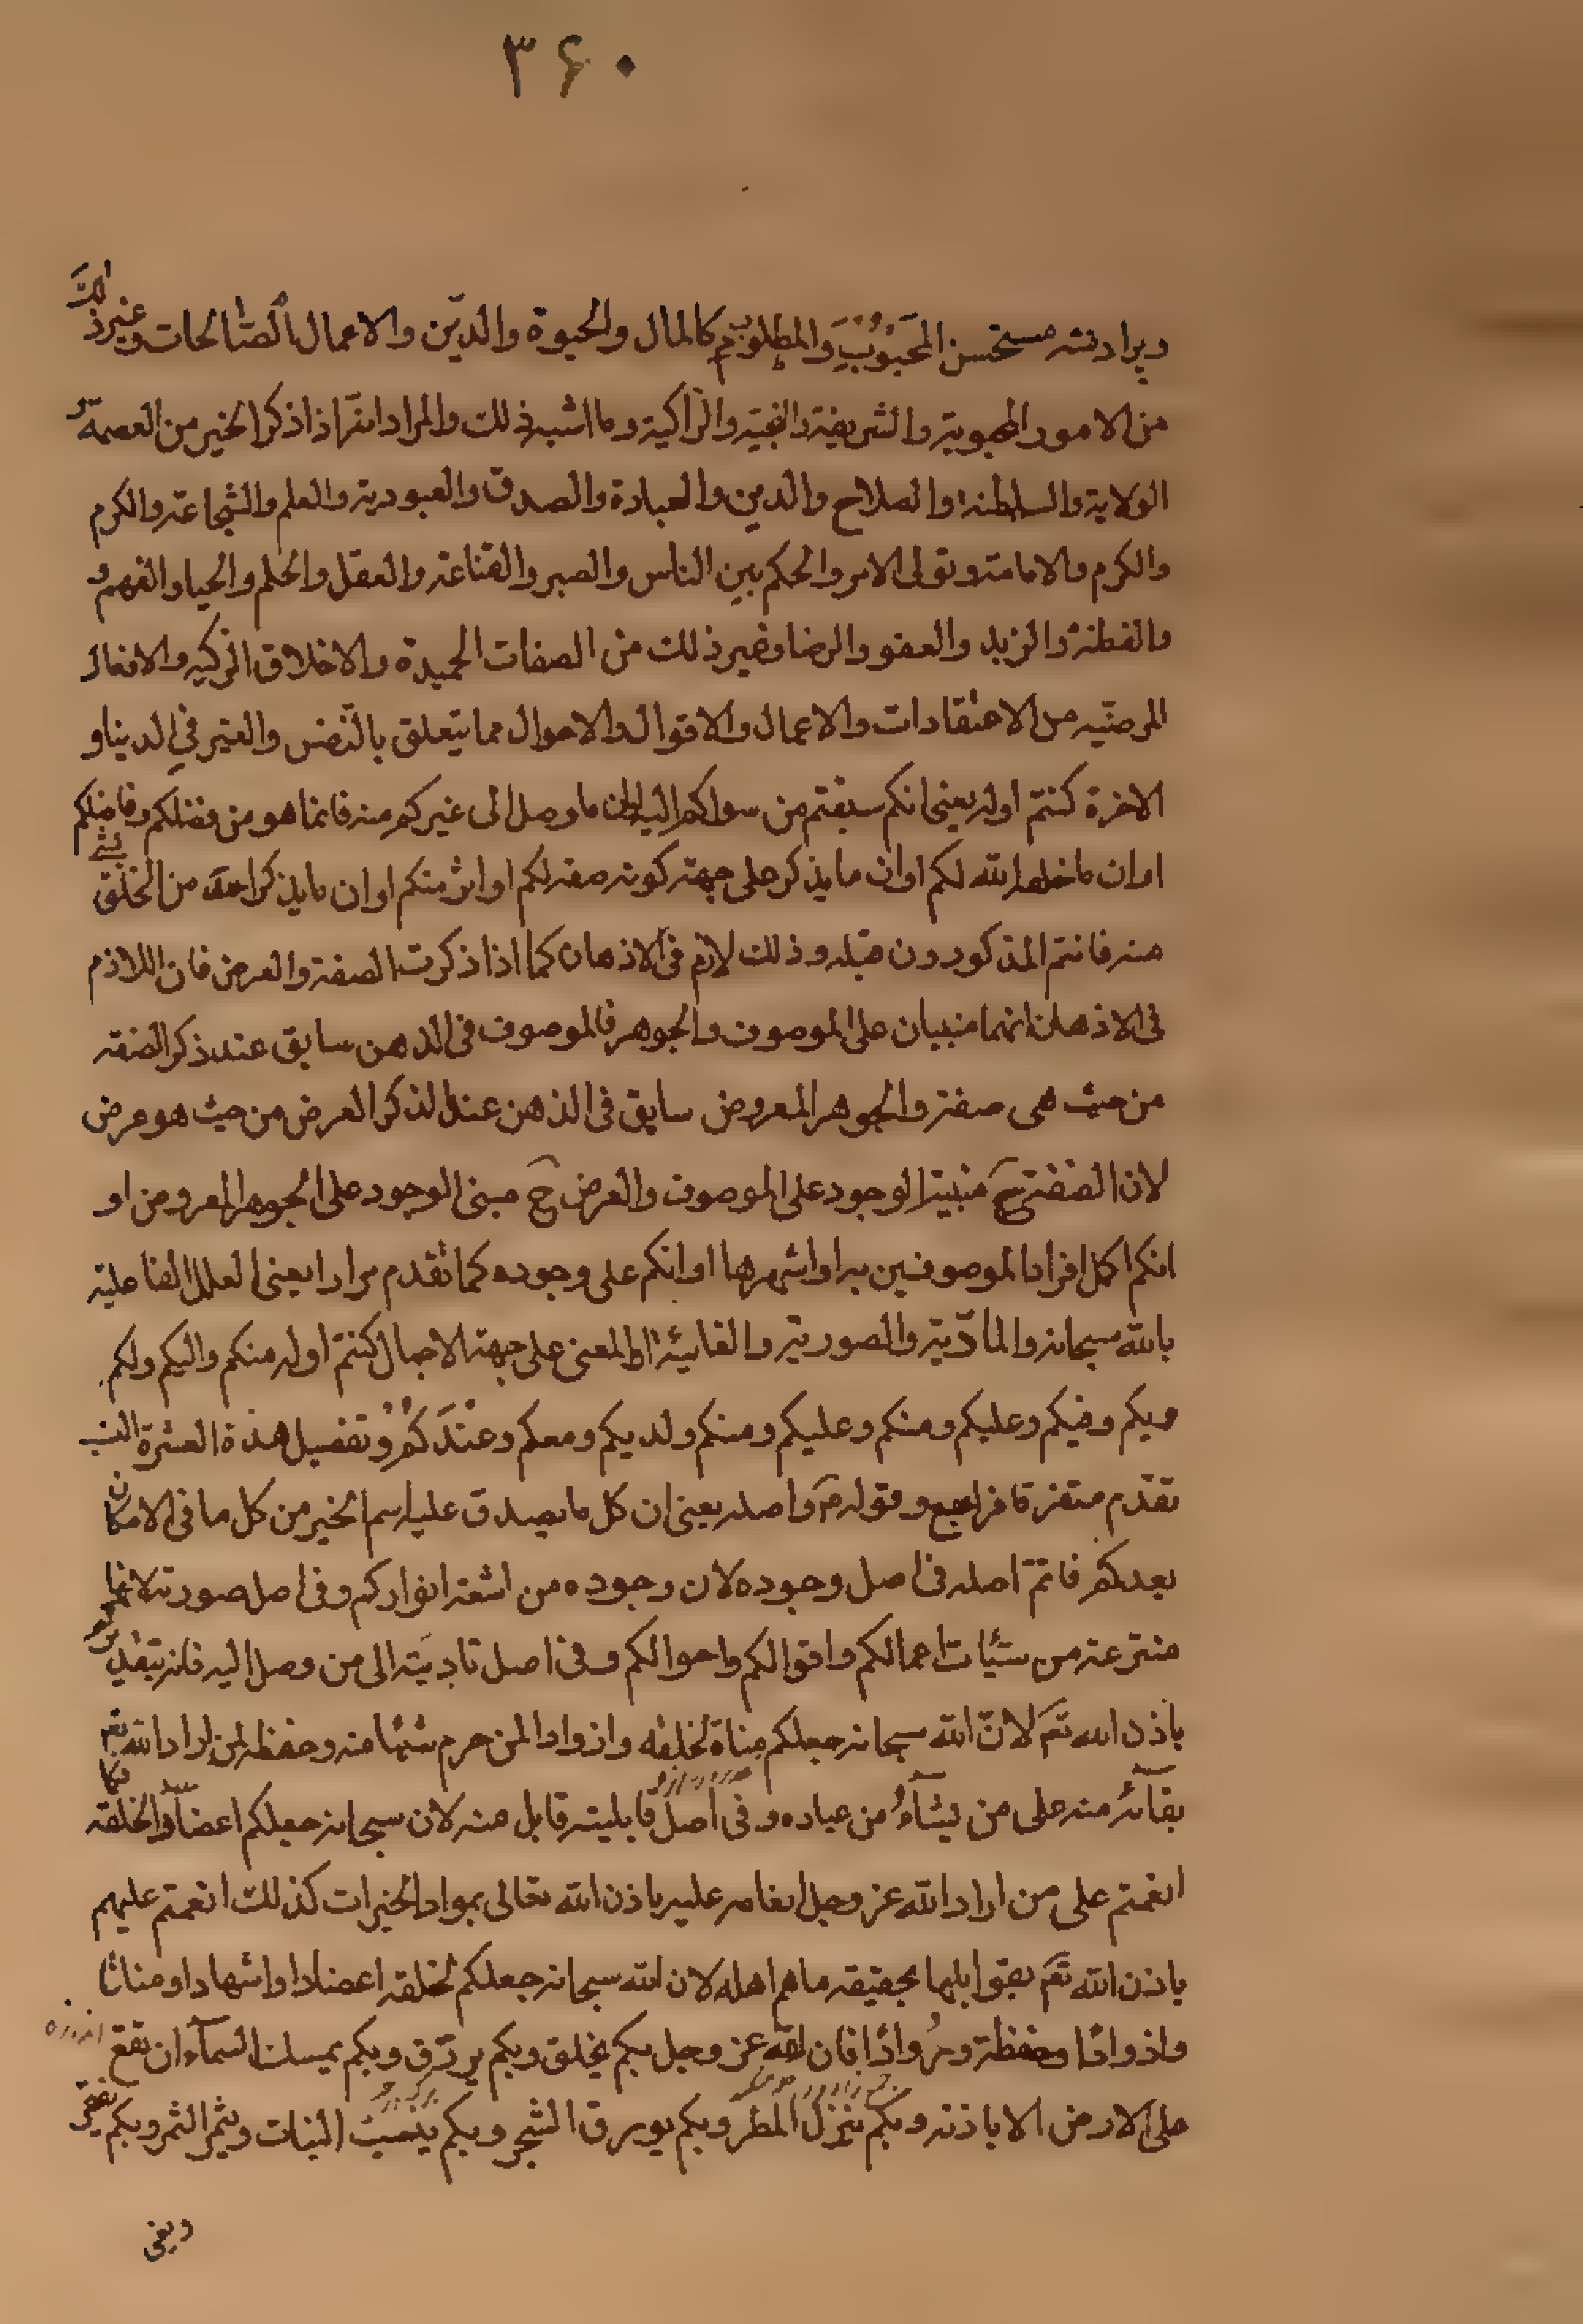 ۳۶۰
ويراد منه مستحسن المحبوب والمطلوب كالمال والحيوة والدين والاعمال الصالحات وغير ذلك
من الامور المحبوبة والشريفة والنجيّة والزاكية وما اشبه ذلك والمراد انه اذا ذكر الخير من العصمة و
الولاية والسلطنة والصلاح والدين والعبادة والصدق والعبودية والعلم والشجاعة والكرم
والكرم والامامة وتولى الامر والحكم بين الناس والصبر والقناعة والعقل والحلم والحيا والفهم و
والفطنة والزهد والعفو والرضا وغير ذلك من الصفات الحميدة والاخلاق الزكيه والافعال
المرضيّه من الاعتقادات والاعمال والاقوال والاحوال مما يتعلق بالنفس والغير في الدينا و
الاخرة كنتم اوله يعنى انكم سبقتم من سواكم اليه وان ما وصل الى غيركم منه فانما هو من فضلكم وفاضلكم
او ان ما خلقه الله لكم او ان ما يذكر على جهة كونه صفة لكم او اثر منكم او ان ما يذكر احد من الخلق بشئ
منه فانتم المذكورون قبله وذلك لازم فى الاذهان كما اذا ذكرت الصفة والعرض فان اللازم
فى الاذهان انهما مبنيان على الموصوف والجوهر فالموصوف فى الذهن سابق عند ذكر الصفه
من حيث هى صفة والجوهر المعروض سابق فى الذهن عند الذكر العرض من حيث هو عرض
لان الصفة ح مبنية الوجود على الموصوف والعرض ح مبنى الوجود على الجوهر المعروض او
انكم اكمل افراد الموصوفين به او اشهرها او انكم على وجوده كما تقدم مرارا يعنى العلل الفاعلية
بالله سبحانه والمادّية والصورية والغائية المعنى على جهة الاجمال كنتم اوله منكم واليكم ولكم
وبكم وفيكم وعليكم ومنكم وعليكم ومنكم ولديكم ومعكم وعندكم وتفصيل هذة العشرة النسب
تقدم متفرقا فراجع وقوله ع واصله يعنى ان كل ما يصدق عليه اسم الخير من كل ما فى الامكان
بعدكم فانتم اصله فى اصل وجوده لان وجوده من اشعة انواركم وفى اصل صورته لانها
منتزعة من هيئات اعمالكم واقوالكم واحوالكم وفى اصل تاديته الى من وصل اليه فانه بتقديركم
باذن الله تع لانّ الله سبحانه جعلكم مناة لخلقه واذوادا لمن حرم شيئا منه وحفظة لمن اراد الله تع
بقائه منه على من يشآء من عباده وفى اصل قابلية قابل منه لان سبحانه جعلكم اعضادا لخلقه فكما
انعمتم على من اراد الله عز وجل انعامه عليه باذن الله تعالى بمواد الخيرات كذلك انعمتم عليهم
باذن الله تع بقوابلها بحقيقة ما هم اهله لان الله سبحانه جعلكم لخلقه اعضادا واشهادا ومناتا
واذوادا وحفظة وروادا فان الله عز وجل بكم يخلق وبكم يرزق وبكم يمسك السمآء ان تقع
على الارض الا باذنه وبكم ينزل المطر وبكم يورق الشجر وبكم ينبت النبات ويثمر الثمر وبكم